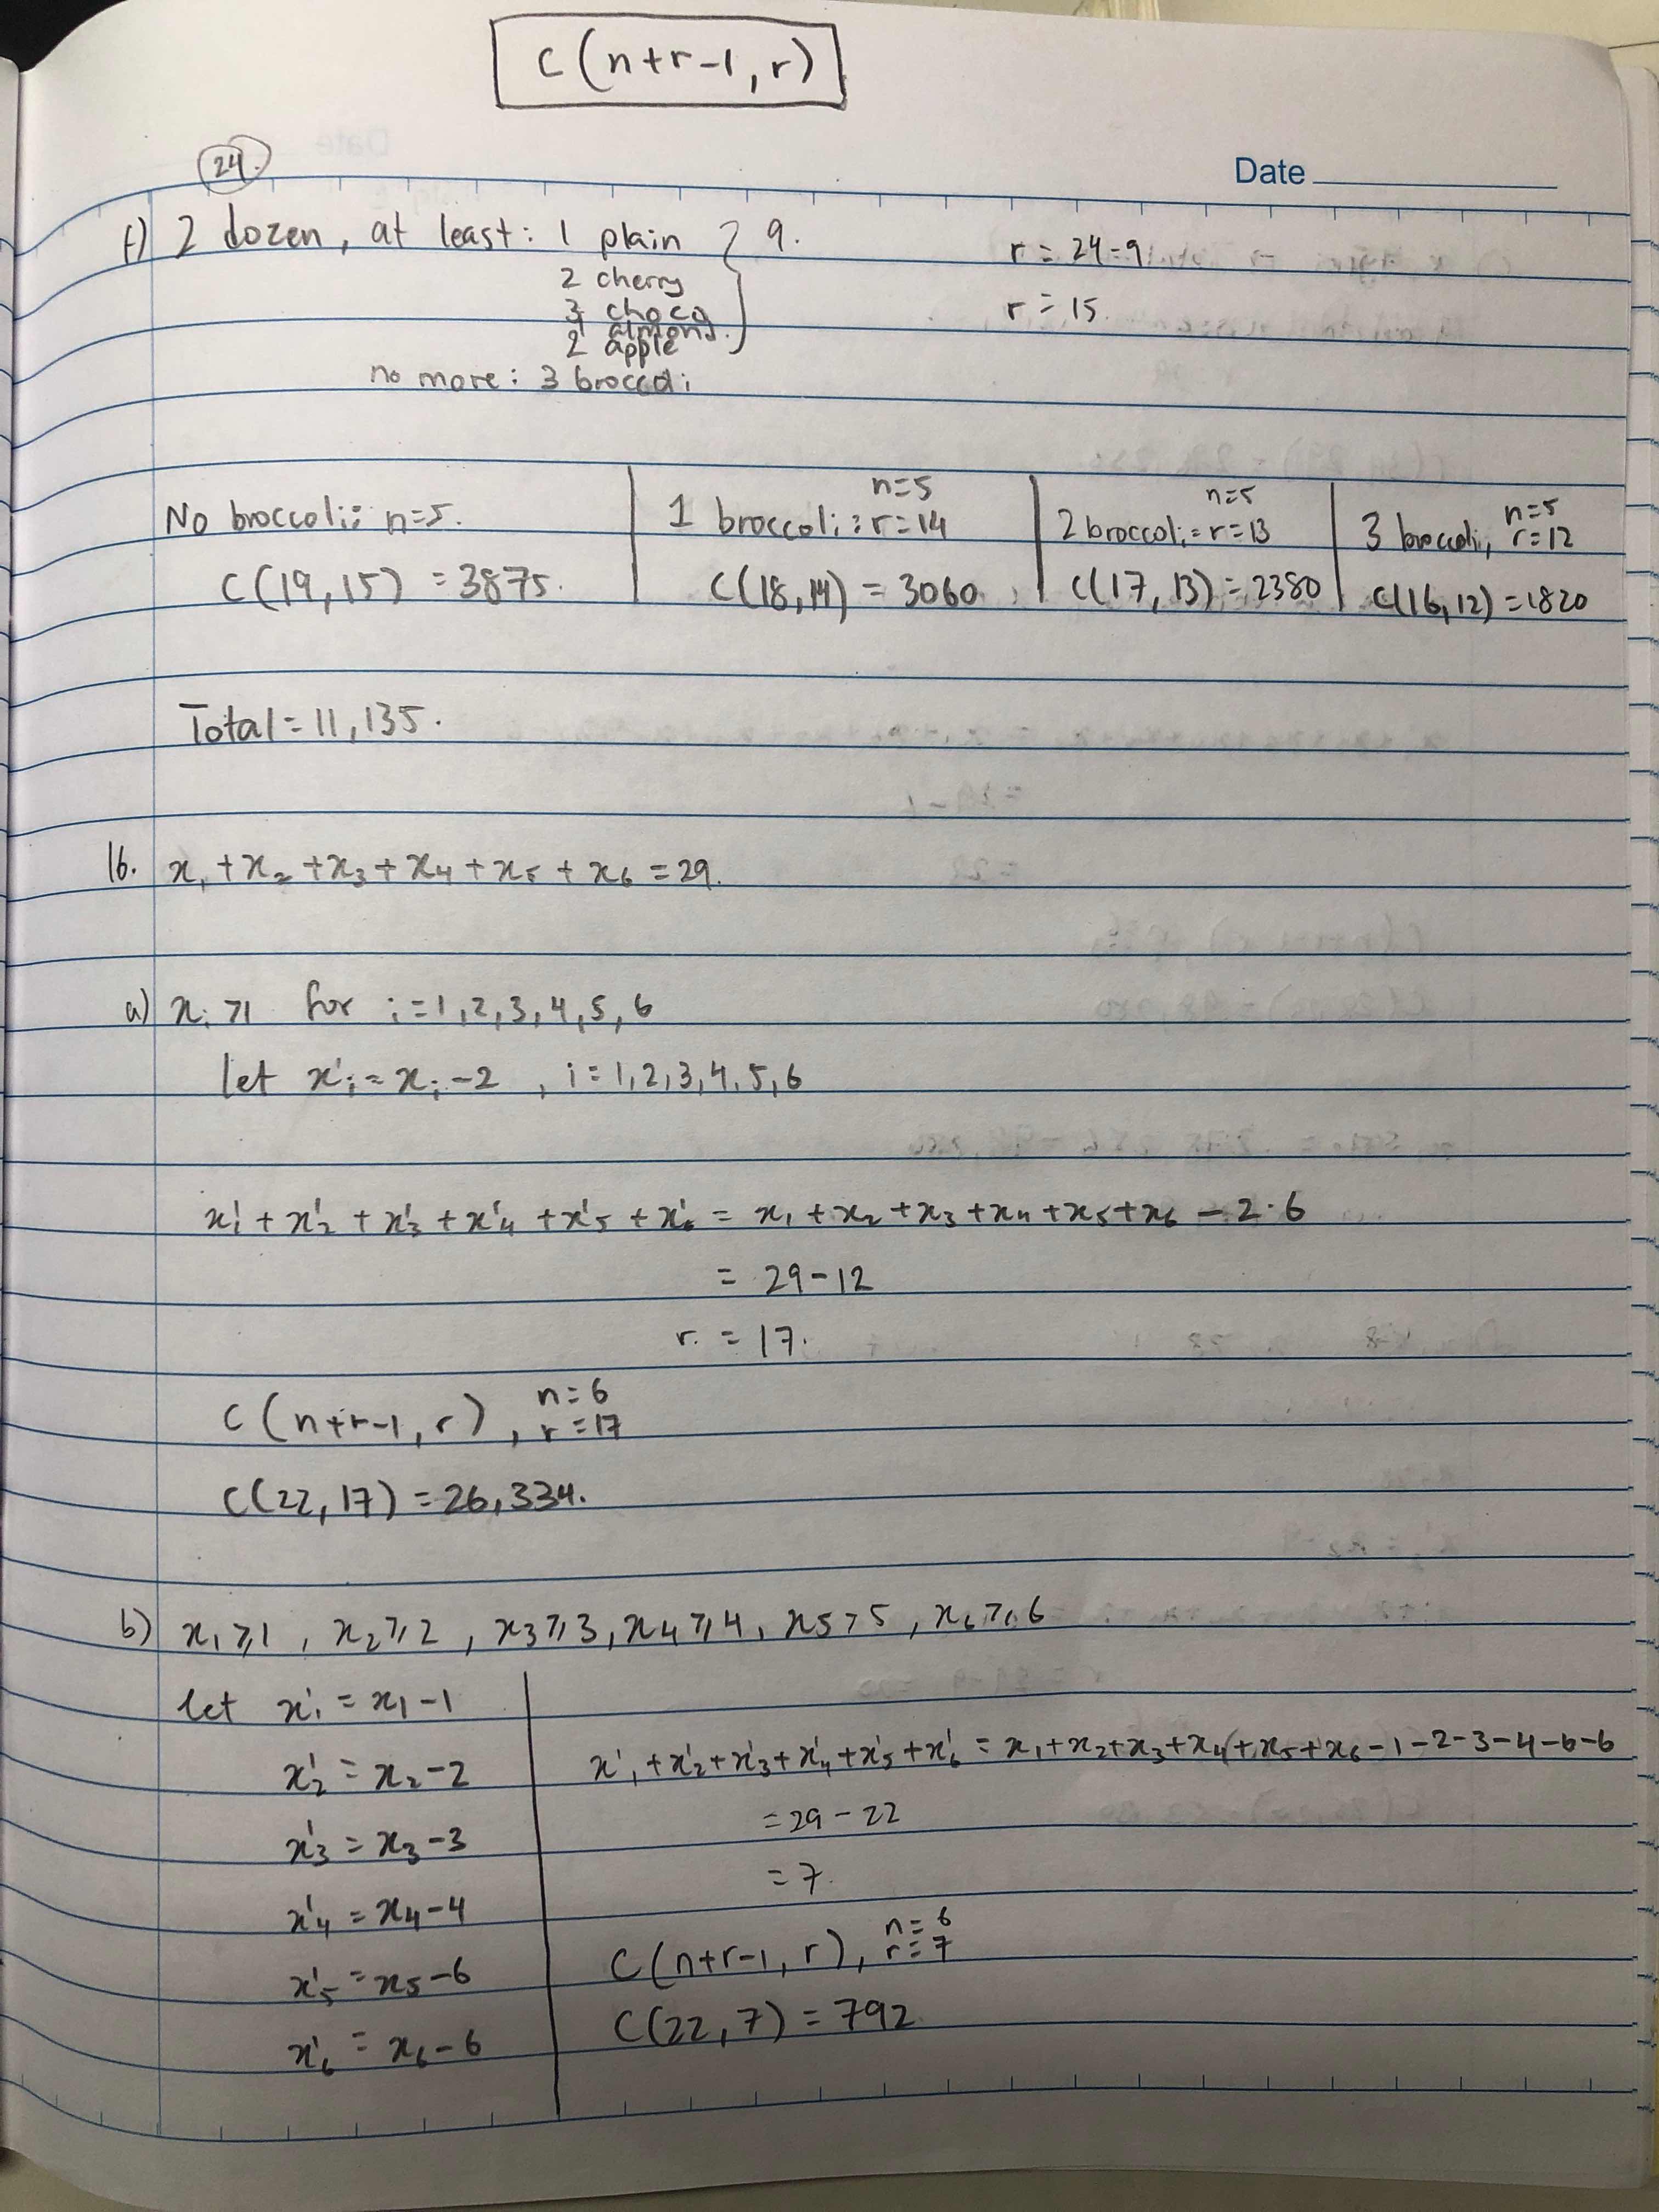 C(n+r-1, r)
24.
Date
f) 2 dozen, at least: 1 plain } 9.
2 cherry
3 choco
1 almond.
2 apple
no more: 3 broccoli
r = 24-9
r = 15.
No broccoli: n=5.
C(19,15) = 3875.
1 broccoli: n=5 r=14
C(18,14) = 3060
2 broccoli = n=5 r=13
C(17,13) = 2380
3 broccoli, n=5 r=12
C(16,12) = 1820
Total = 11,135.
16. x₁ + x₂ + x₃ + x₄ + x₅ + x₆ = 29.
a) xᵢ > 1 for i = 1,2,3,4,5,6
let x'ᵢ = xᵢ - 2 , i = 1,2,3,4,5,6
x'₁ + x'₂ + x'₃ + x'₄ + x'₅ + x'₆ = x₁ + x₂ + x₃ + x₄ + x₅ + x₆ - 2·6
= 29 - 12
r. = 17.
C(n+r-1, r), n=6 r=17
C(22, 17) = 26,334.
b) x₁ ≥ 1, x₂ ≥ 2, x₃ ≥ 3, x₄ ≥ 4, x₅ > 5, x₆ ≥ 6
let x'₁ = x₁ - 1
x'₂ = x₂ - 2
x'₃ = x₃ - 3
x'₄ = x₄ - 4
x'₅ = x₅ - 6
x'₆ = x₆ - 6
x'₁ + x'₂ + x'₃ + x'₄ + x'₅ + x'₆ = x₁ + x₂ + x₃ + x₄ + x₅ + x₆ - 1 - 2 - 3 - 4 - 6 - 6
= 29 - 22
= 7.
C(n+r-1, r), n=6 r=7
C(22, 7) = 792